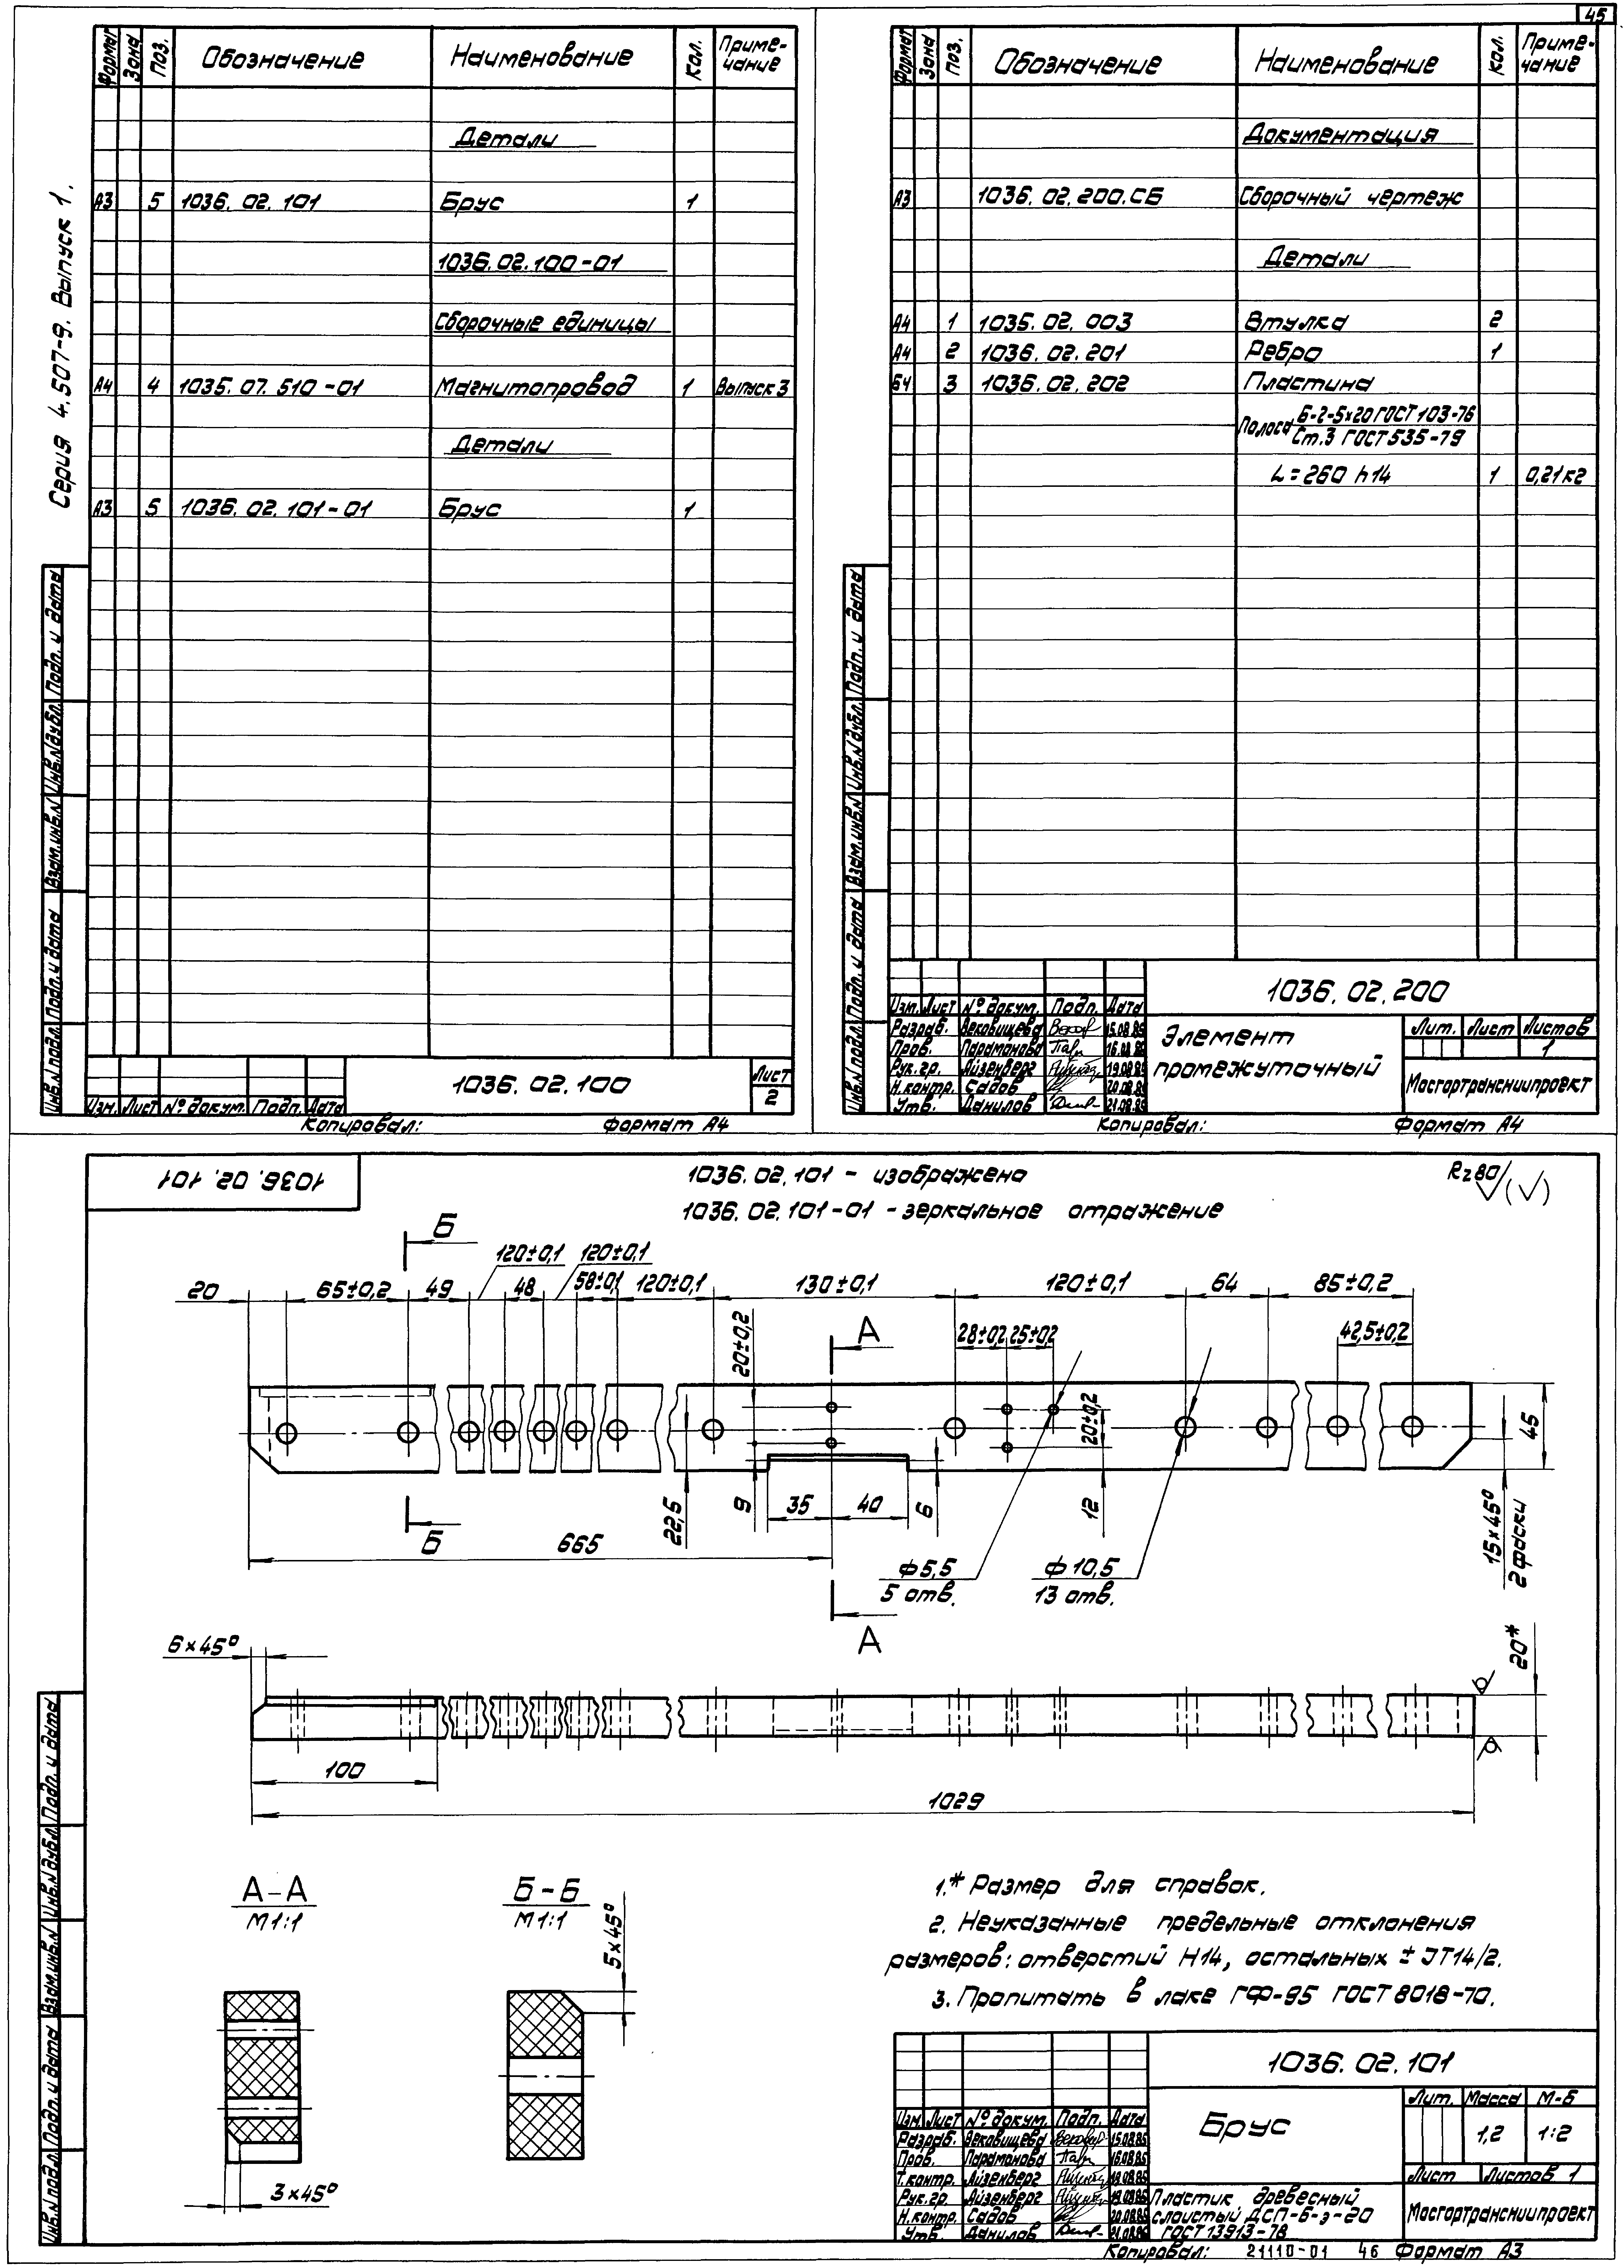 45
Серия 4.507-9. Выпуск 1.
Формат Зона Поз. Обозначение Наименование Кол. Приме-
чание
Детали
А3 5 1036.02.101 Брус 1
1036.02.100-01
Сборочные единицы
А4 4 1035.07.510-01 Магнитопровод 1 Выпуск 3
Детали
А3 5 1036.02.101-01 Брус 1
Инв.№подл. Подп. и дата Взам.инв.№ Инв.№дубл. Подп. и дата
Изм. Лист № докум. Подп. Дата
1036.02.100
Лист
2
Копировал: Формат А4
Формат Зона Поз. Обозначение Наименование Кол. Приме-
чание
Документация
А3 1036.02.200.СБ Сборочный чертеж
Детали
А4 1 1035.02.003 Втулка 2
А4 2 1036.02.201 Ребро 1
БЧ 3 1036.02.202 Пластина
Полоса Б-2-5х20 ГОСТ 103-76
Ст.3 ГОСТ 535-79
L=260 h14 1 0,21кг
Инв.№подл. Подп. и дата Взам.инв.№ Инв.№дубл. Подп. и дата
1036.02.200
Изм. Лист № докум. Подп. Дата
Разраб. Вековищева 15.08.85
Пров. Парамонова 16.08.85
Рук.гр. Айзенберг 19.08.85
Н.контр. Садов 20.08.85
Утв. Данилов 21.08.85
Элемент
промежуточный
Лит. Лист Листов
1
Мосгортрансниипроект
Копировал: Формат А4
1036.02.101
1036.02.101 - изображено
1036.02.101-01 - зеркальное отражение
Rz80 (√)
Б
120±0,1 120±0,1
20 65±0,2 49 48 58±0,1 120±0,1 130±0,1 120±0,1 64 85±0,2
20±0,2 А 28±0,2 25±0,2 42,5±0,2
20±0,2 45
22,5 9 35 40 6 12 15х45°
2 фаски
Б
665
ф5,5
5 отв.
ф10,5
13 отв.
А
6х45°
20*
100
1029
А-А
М1:1
3х45°
Б-Б
М1:1
5х45°
1.* Размер для справок.
2. Неуказанные предельные отклонения
размеров: отверстий Н14, остальных ± JT14/2.
3. Пропитать в лаке ГФ-95 ГОСТ 8018-70.
Инв.№подл. Подп. и дата Взам.инв.№ Инв.№дубл. Подп. и дата
1036.02.101
Изм. Лист № докум. Подп. Дата
Разраб. Вековищева 15.08.85
Пров. Парамонова 16.08.85
Т.контр. Айзенберг 19.08.85
Рук.гр. Айзенберг 19.08.85
Н.контр. Садов 20.08.85
Утв. Данилов 21.08.85
Брус
Лит. Масса М-Б
1,2 1:2
Лист Листов 1
Пластик древесный
слоистый ДСП-Б-э-20
ГОСТ 13913-78
Мосгортрансниипроект
Копировал: 21110-01 46 Формат А3